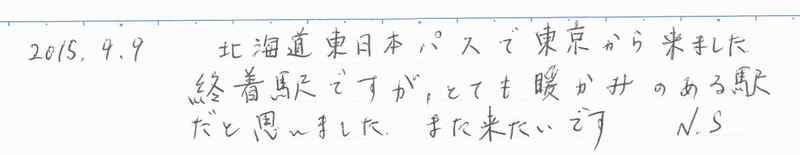 2015.9.9 北海道東日本パスで東京から来ました
終着駅ですが、とても暖かみのある駅
だと思いました. また来たいです N.S